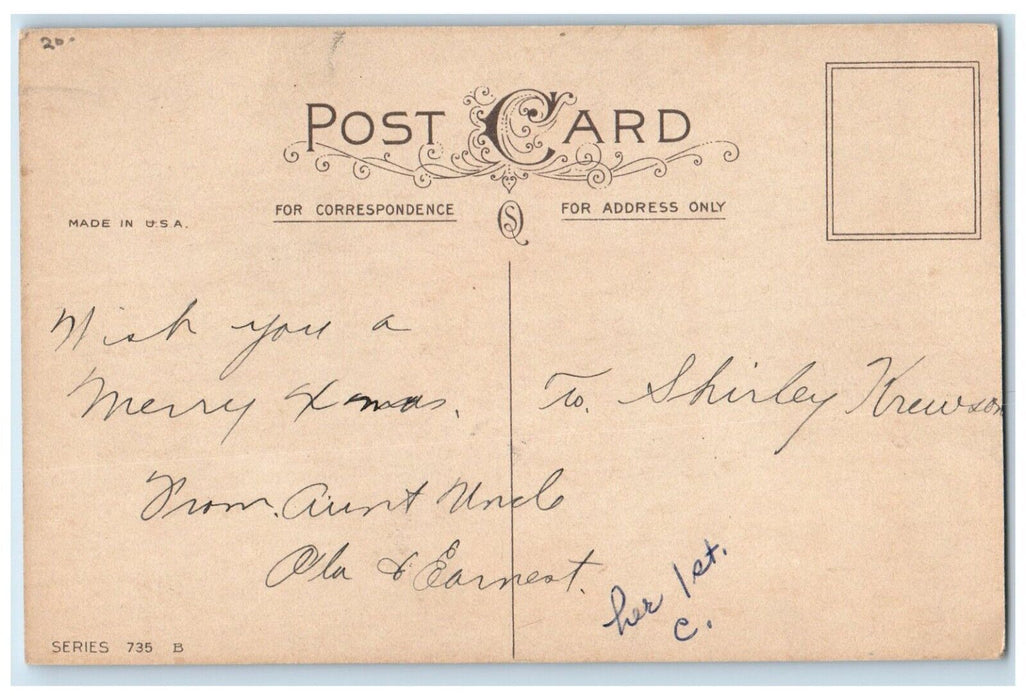 20.
POST CARD
FOR CORRESPONDENCE
FOR ADDRESS ONLY
MADE IN U.S.A.
Wish you a
Merry Xmas.
From. Aunt Uncle
Ola & Earnest.
To. Shirley Krewson
her 1st.
C.
SERIES 735 B